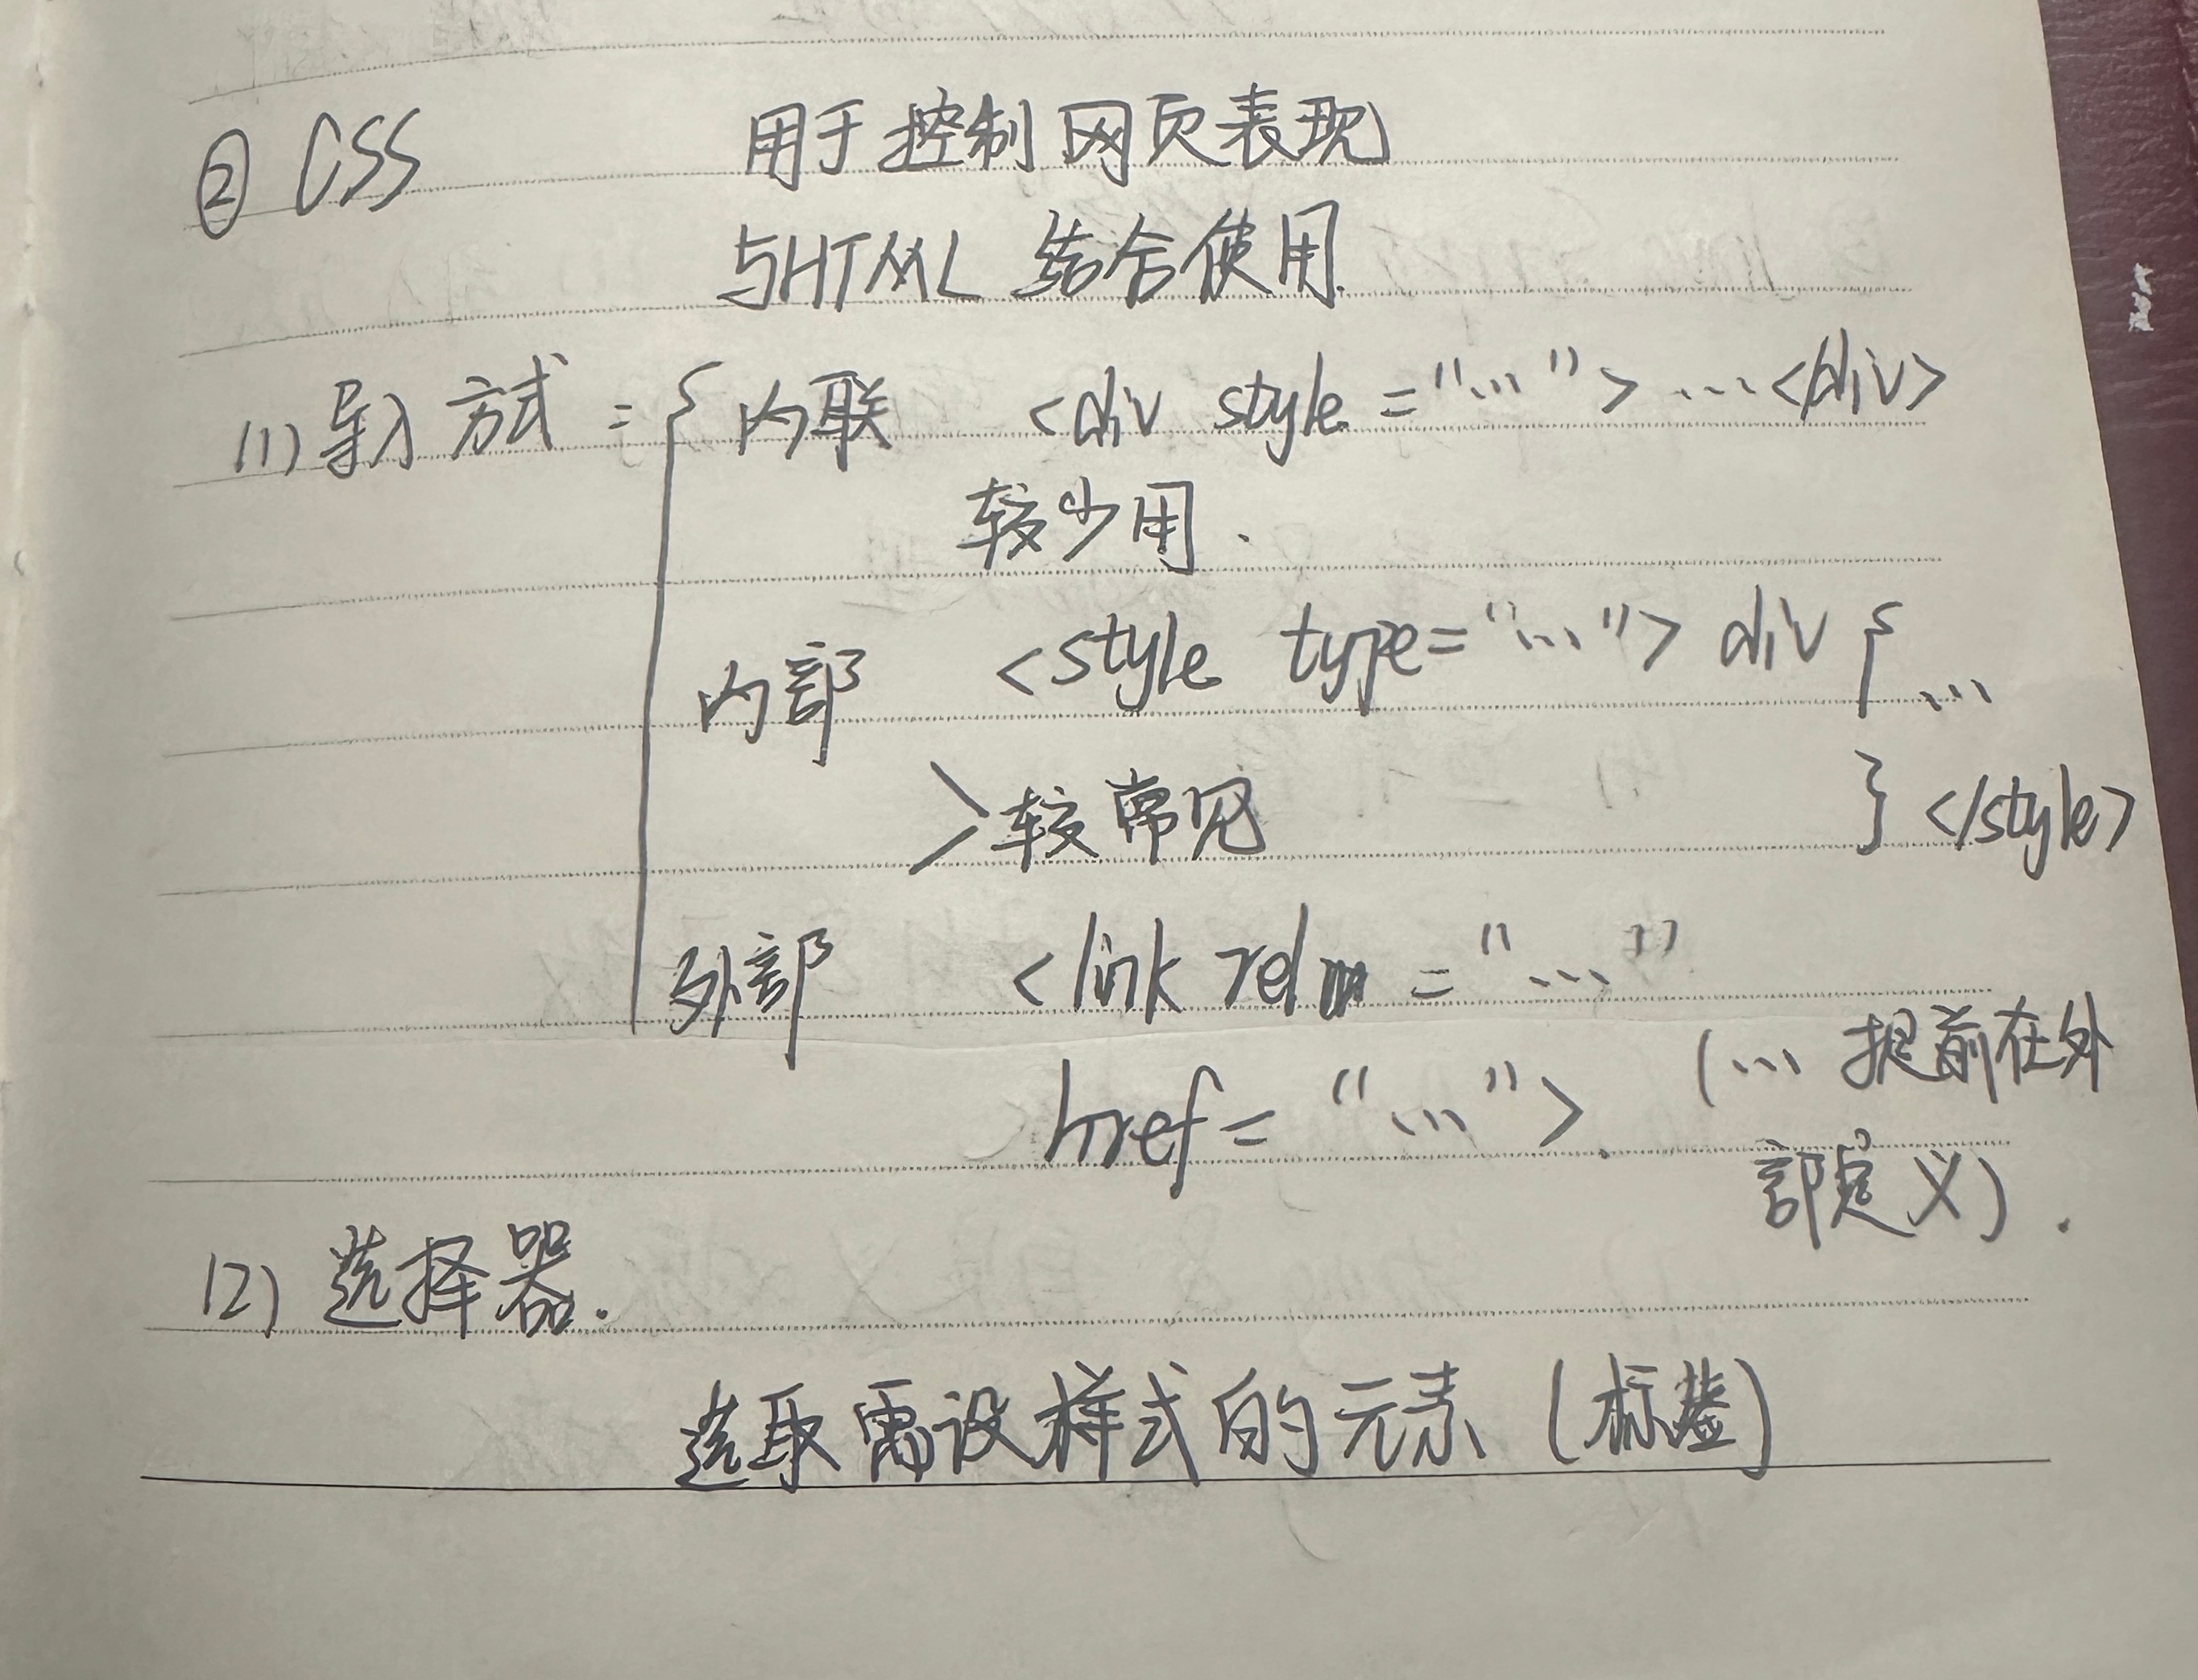 ② CSS 用于控制网页表现
与HTML 结合使用.
(1) 导入方式：{ 内联 <div style="...">...</div>
较少用.
内部 <style type="..."> div { ...
较常见 } </style>
外部 <link rel = "..."
href= "..."> (... 提前在外
部定义).
(2) 选择器.
选取需设样式的元素 (标签)